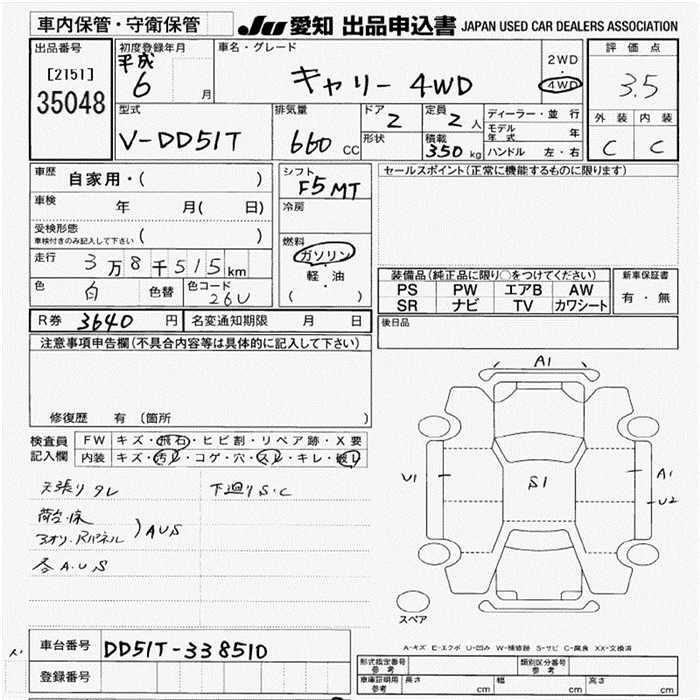 車内保管・守衛保管
JU 愛知 出品申込書 JAPAN USED CAR DEALERS ASSOCIATION
出品番号
[2151]
35048
初度登録年月
平成
6 月
車名・グレード
キャリー 4WD
2WD
・
4WD
評価点
3.5
外装 内装
C C
型式
V-DD51T
排気量
660 CC
ドア 2
形状
定員 2 人
積載 350 kg
ディーラー・並行
モデル年式 年
ハンドル 左・右
車歴 自家用・( )
車検 年 月( 日)
受検形態
車検付きのみ記入して下さい ( )
走行 3万8千515km
色 白 色替 色コード 26U
R券 3640 円 名変通知期限 月 日
シフト
F5MT
冷房
燃料
ガソリン
・
軽油
( )
セールスポイント(正常に機能するものに限ります)
装備品(純正品に限り○をつけてください)
PS PW エアB AW
SR ナビ TV カワシート
新車保証書
有・無
後日品
注意事項申告欄(不具合内容等は具体的に記入して下さい)
修復歴 有 (箇所 )
検査員
記入欄
FW キズ・飛石・ヒビ割・リペア跡・X要
内装 キズ・汚レ・コゲ・穴・スレ・キレ・破レ
天張りタレ 下廻りS.C
荷台・床
アオリ・Rパネル ) AUS
各A.U.S
A1
U1
S1
A1
U2
スペア
A-キズ E-エクボ U-凹み W-補修跡 S-サビ C-腐食 XX-交換済
車台番号 DD51T-338510
登録番号
型式指定番号
参考
類別区分番号
参考
車庫証明用
参考
長さ cm 幅 cm 高さ cm